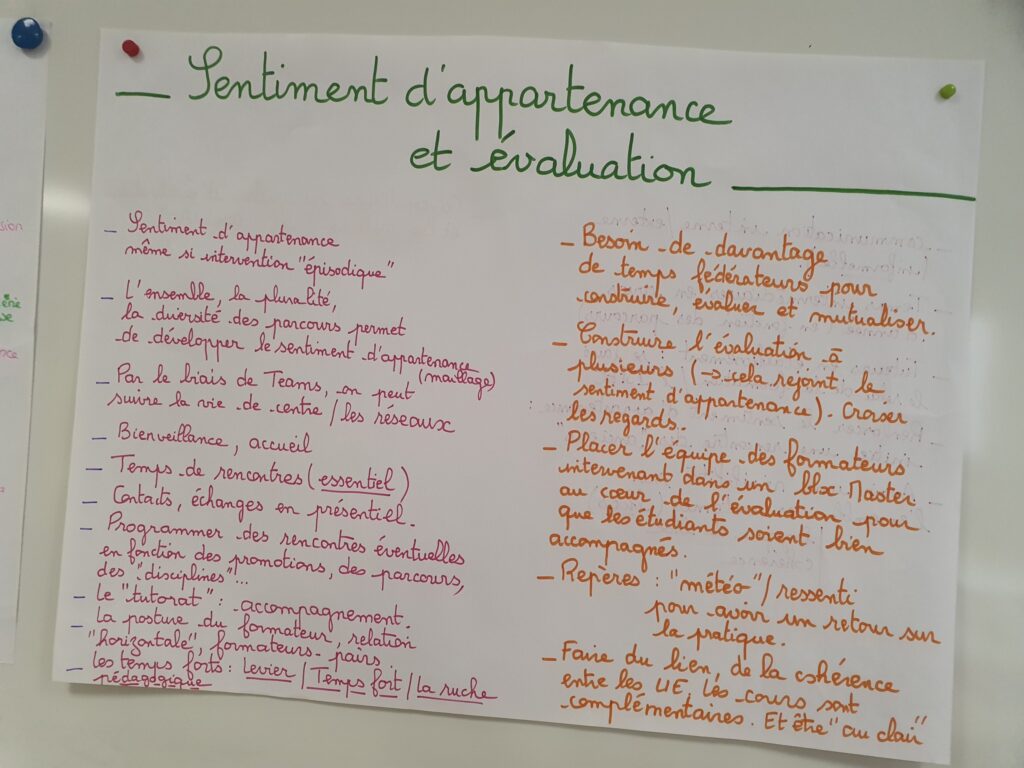 Sentiment d'appartenance
et évaluation
- Sentiment d'appartenance
même si intervention "épisodique"
- L'ensemble, la pluralité,
la diversité des parcours permet
de développer le sentiment d'appartenance
(maillage)
- Par le biais de Teams, on peut
suivre la vie de centre / les réseaux
- Bienveillance, accueil
- Temps de rencontres (essentiel)
- Contacts, échanges en présentiel.
- Programmer des rencontres éventuelles
en fonction des promotions, des parcours,
des "disciplines"...
- Le "tutorat" : accompagnement.
- La posture du formateur, relation
"horizontale", formateurs-pairs
- Les temps forts : Levier / Temps fort / La ruche
pédagogique
- Besoin de davantage
de temps fédérateurs pour
construire, évaluer et mutualiser.
- Construire l'évaluation à
plusieurs (→ cela rejoint le
sentiment d'appartenance). Croiser
les regards.
- Placer l'équipe des formateurs
intervenant dans un blx Master
au cœur de l'évaluation pour
que les étudiants soient bien
accompagnés.
- Repères : "météo" / ressenti
pour avoir un retour sur
la pratique.
- Faire du lien, de la cohérence
entre les UE. Les cours sont
complémentaires. Et être "au clair"
sion